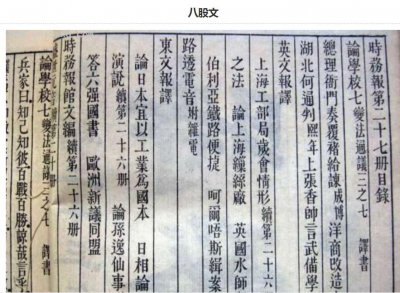 八股文
時務報第二十七册目錄
論學校七變法通議三之七 譯書
總理衙門奏覆褚給諫成博洋商改造
湖北何通判熙年上張香帥言武備學
英文報譯
上海工部局歲會情形續第二十六
之法 論上海繅絲廠 英國水師
伯利亞鐵路便捷 呵爾唔斯緝案
路透電音附羅電
東文報譯
論日本宜以工業為國本 日相論
演説續第二十六册 論孫逸仙事
答六强國書 歐洲新議同盟
時務報館文編續第二十六册
論學校七變法通議三之七 譯書
兵家曰知己知彼百戰百勝諒哉言乎